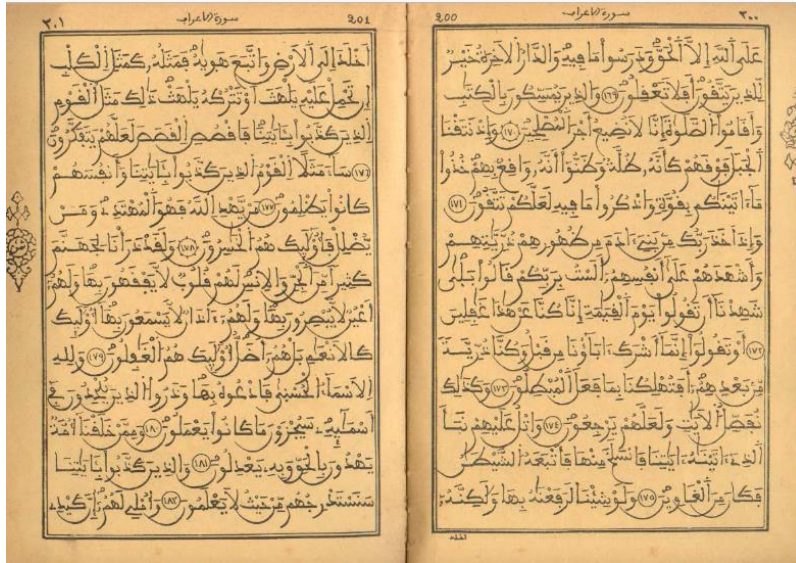 ٢٠٠ سورة الاعراف 200
على الله إلا الحق ودرسوا ما فيه والدار الاخرة خير
للذين يتقون أفلا تعقلون ١٦٩ والذين يمسكون بالكتب
وأقاموا الصلوة إنا لا نضيع أجر المصلحين ١٧٠ وإذ نتقنا
الجبل فوقهم كأنه ظلة وظنوا أنه واقع بهم خذوا
ما ءاتينكم بقوة واذكروا ما فيه لعلكم تتقون ١٧١
وإذ اخذ ربك من بنے ءادم من ظهورهم ذريتهم
وأشهدهم على أنفسهم ألست بربكم قالوا بلى
شهدنا أن تقولوا يوم القيمة إنا كنا عن هذا غفلين
١٧٢ أو تقولوا إنما أشرك ءاباؤنا من قبل وكنا ذرية
من بعدهم أفتهلكنا بما فعل المبطلون ١٧٣ وكذلك
نفصل الايت ولعلهم يرجعون ١٧٤ واتل عليهم نبأ
الذے ءاتينه ءايتنا فانسلخ منها فأتبعه الشيطن
فكان من الغاوين ١٧٥ ولو شئنا لرفعنه بها ولكنه
اخلد
٢٠١ سورة الاعراف 201
أخلد إلى الارض واتبع هويه فمثله كمثل الكلب
إن تحمل عليه يلهث أو تتركه يلهث ذلك مثل القوم
الذين كذبوا بئايتنا فاقصص القصص لعلهم يتفكرون
١٧٦ ساء مثلا القوم الذين كذبوا بئايتنا وأنفسهم
كانوا يظلمون ١٧٧ من يهد الله فهو المهتدے ومن
يضلل فأولئك هم الخسرون ١٧٨ ولقد ذرأنا لجهنم
كثيرا من الجن والانس لهم قلوب لا يفقهون بها ولهم
أعين لا يبصرون بها ولهم ءاذان لا يسمعون بها أولئك
كالانعم بل هم أضل أولئك هم الغفلون ١٧٩ ولله
الاسماء الحسنى فادعوه بها وذروا الذين يلحدون فے
أسمئه سيجزون ما كانوا يعملون ١٨٠ وممن خلقنا أمة
يهدون بالحق وبه يعدلون ١٨١ والذين كذبوا بئايتنا
سنستدرجهم من حيث لا يعلمون ١٨٢ وأملے لهم إن كيدے